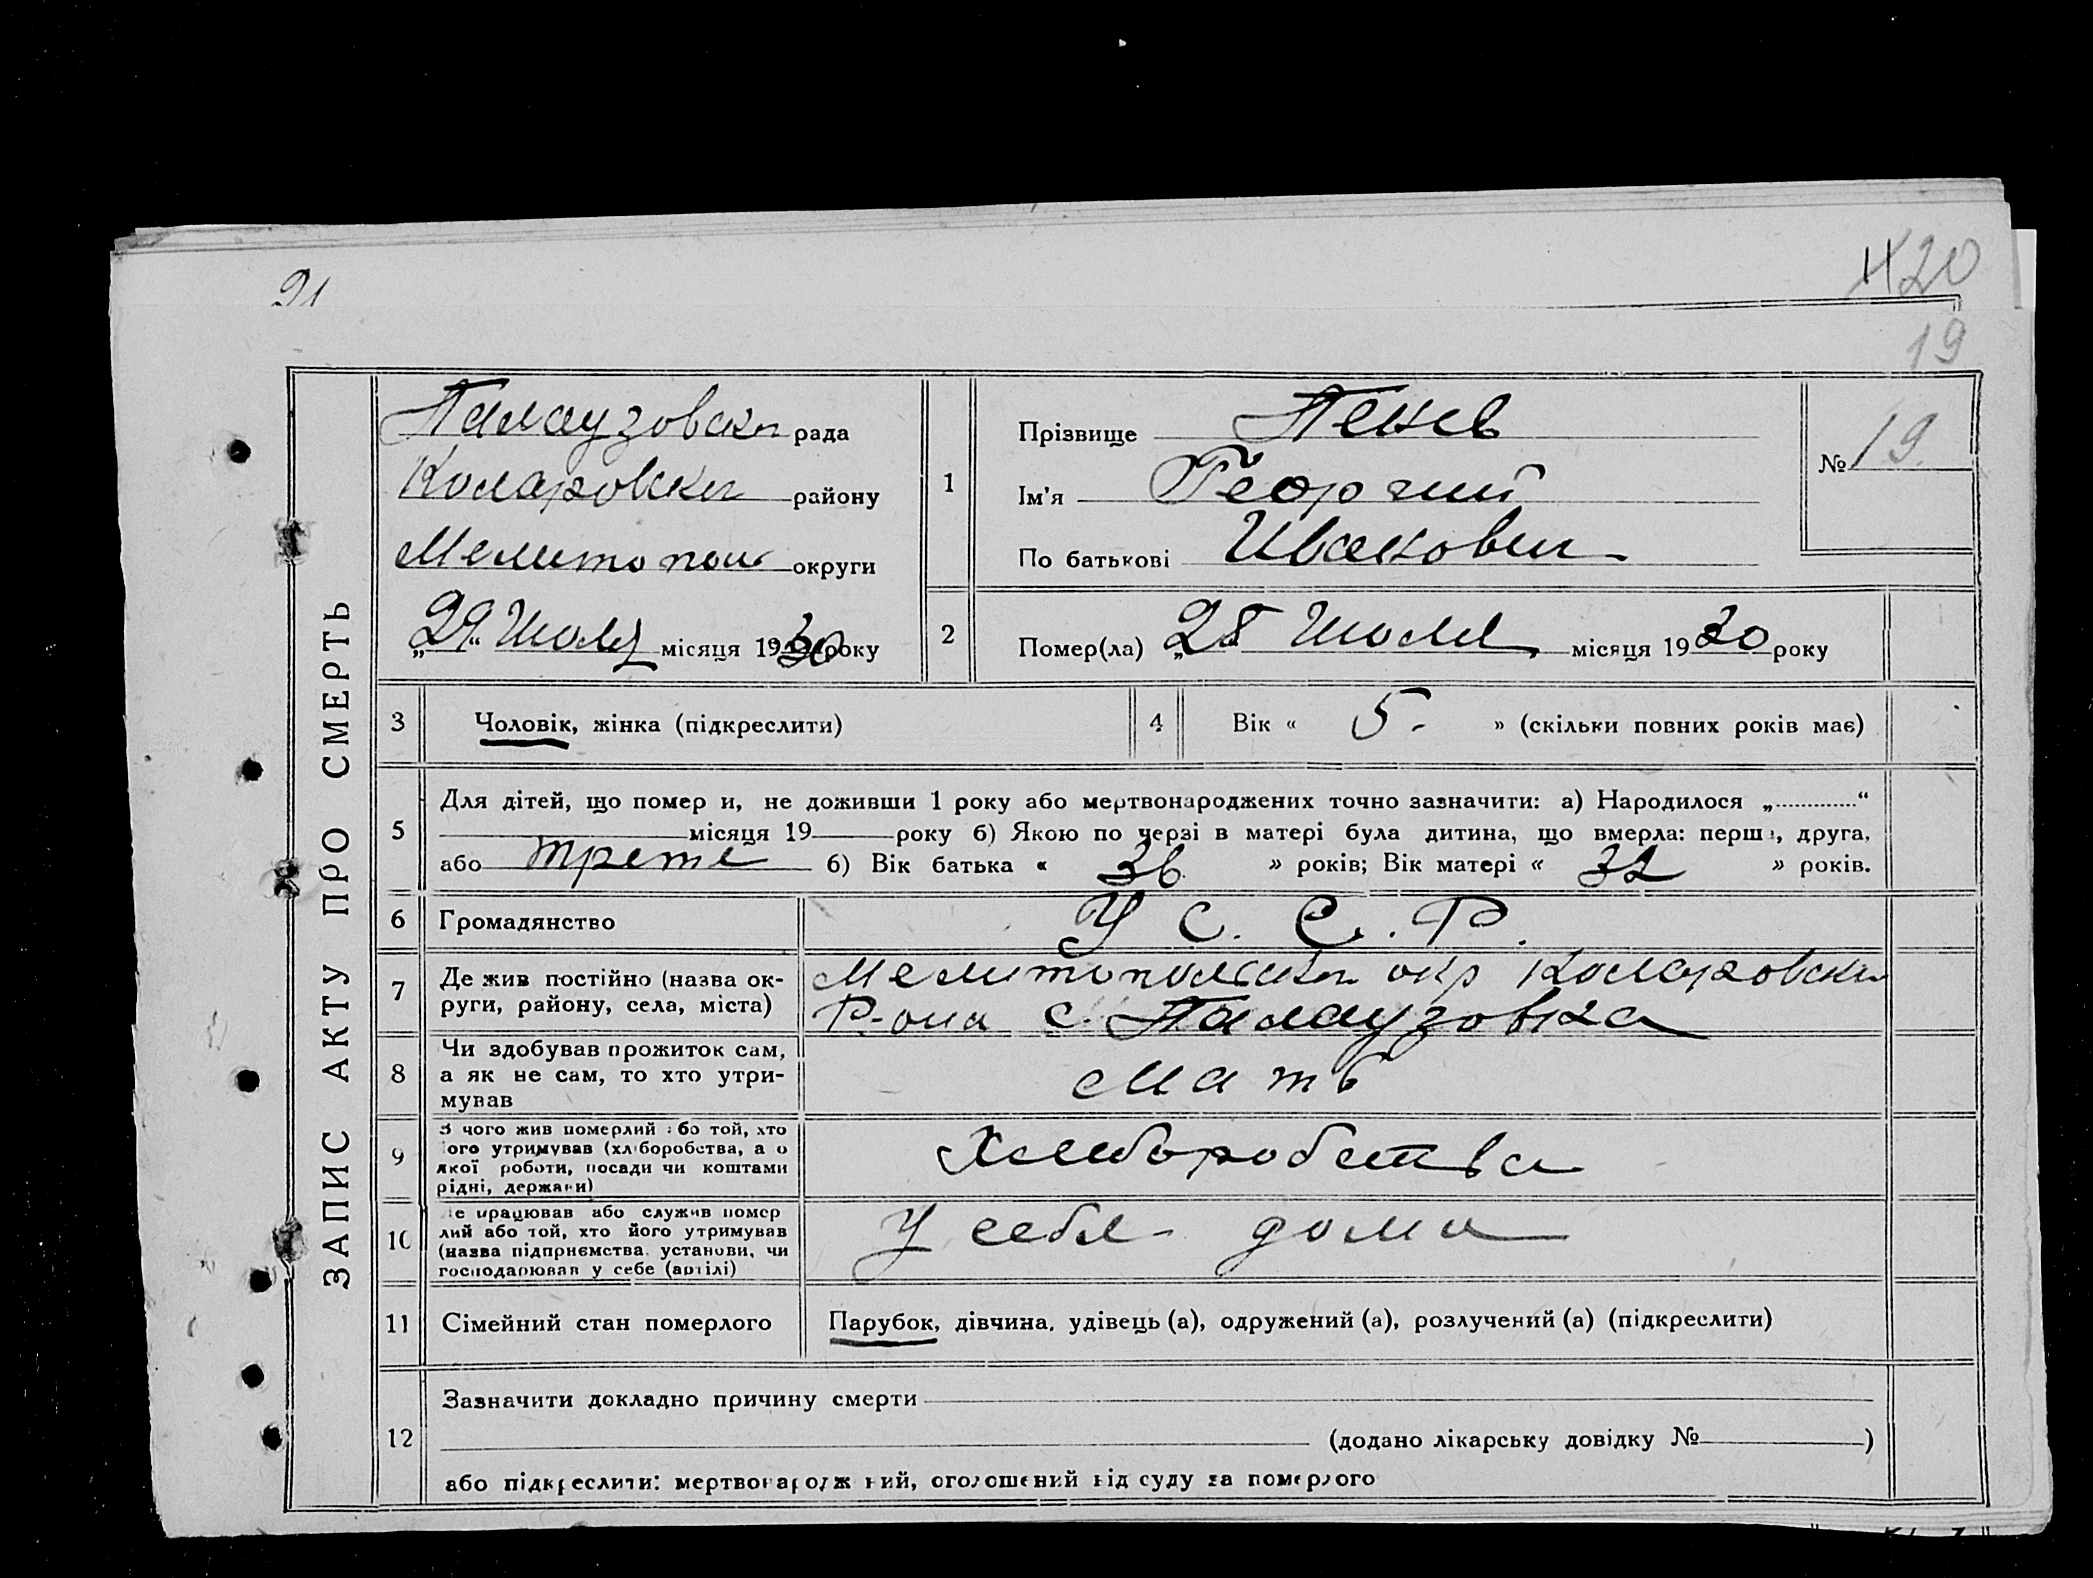 91
420
19
ЗАПИС АКТУ ПРО СМЕРТЬ
Палаузовски рада
Коларовски району
Мелитопол округи
„29“ Июля місяця 1930 року
1
Прізвище Пенев
Ім'я Георгий
По батькові Иванович
№ 19
2
Помер(ла) „28“ Июля місяця 1930 року
3 Чоловік, жінка (підкреслити)
4 Вік « 5. » (скільки повних років має)
5 Для дітей, що помер и, не доживши 1 року або мертвонароджених точно зазначити: а) Народилося „............“
місяця 19 року б) Якою по черзі в матері була дитина, що вмерла: перша, друга,
або трете б) Вік батька « 36 » років; Вік матері « 32 » років.
6 Громадянство У С. С. Р.
7 Де жив постійно (назва ок-
руги, району, села, міста)
Мелитопольски окр Коларовски
Р-она с. Палаузовка
8 Чи здобував прожиток сам,
а як не сам, то хто утри-
мував
Мать
9 З чого жив померлий або той, хто
його утримував (хліборобства, а о
якої роботи, посади чи коштами
рідні, держави)
Хлеборобства
10 Де працював або служив помер
лий або той, хто його утримував
(назва підприємства, установи, чи
господарював у себе (артілі)
У себя дома
11 Сімейний стан померлого Парубок, дівчина, удівець (а), одружений (а), розлучений (а) (підкреслити)
12 Зазначити докладно причину смерти
(додано лікарську довідку № )
або підкреслити: мертвонароджений, оголошений від суду за померлого